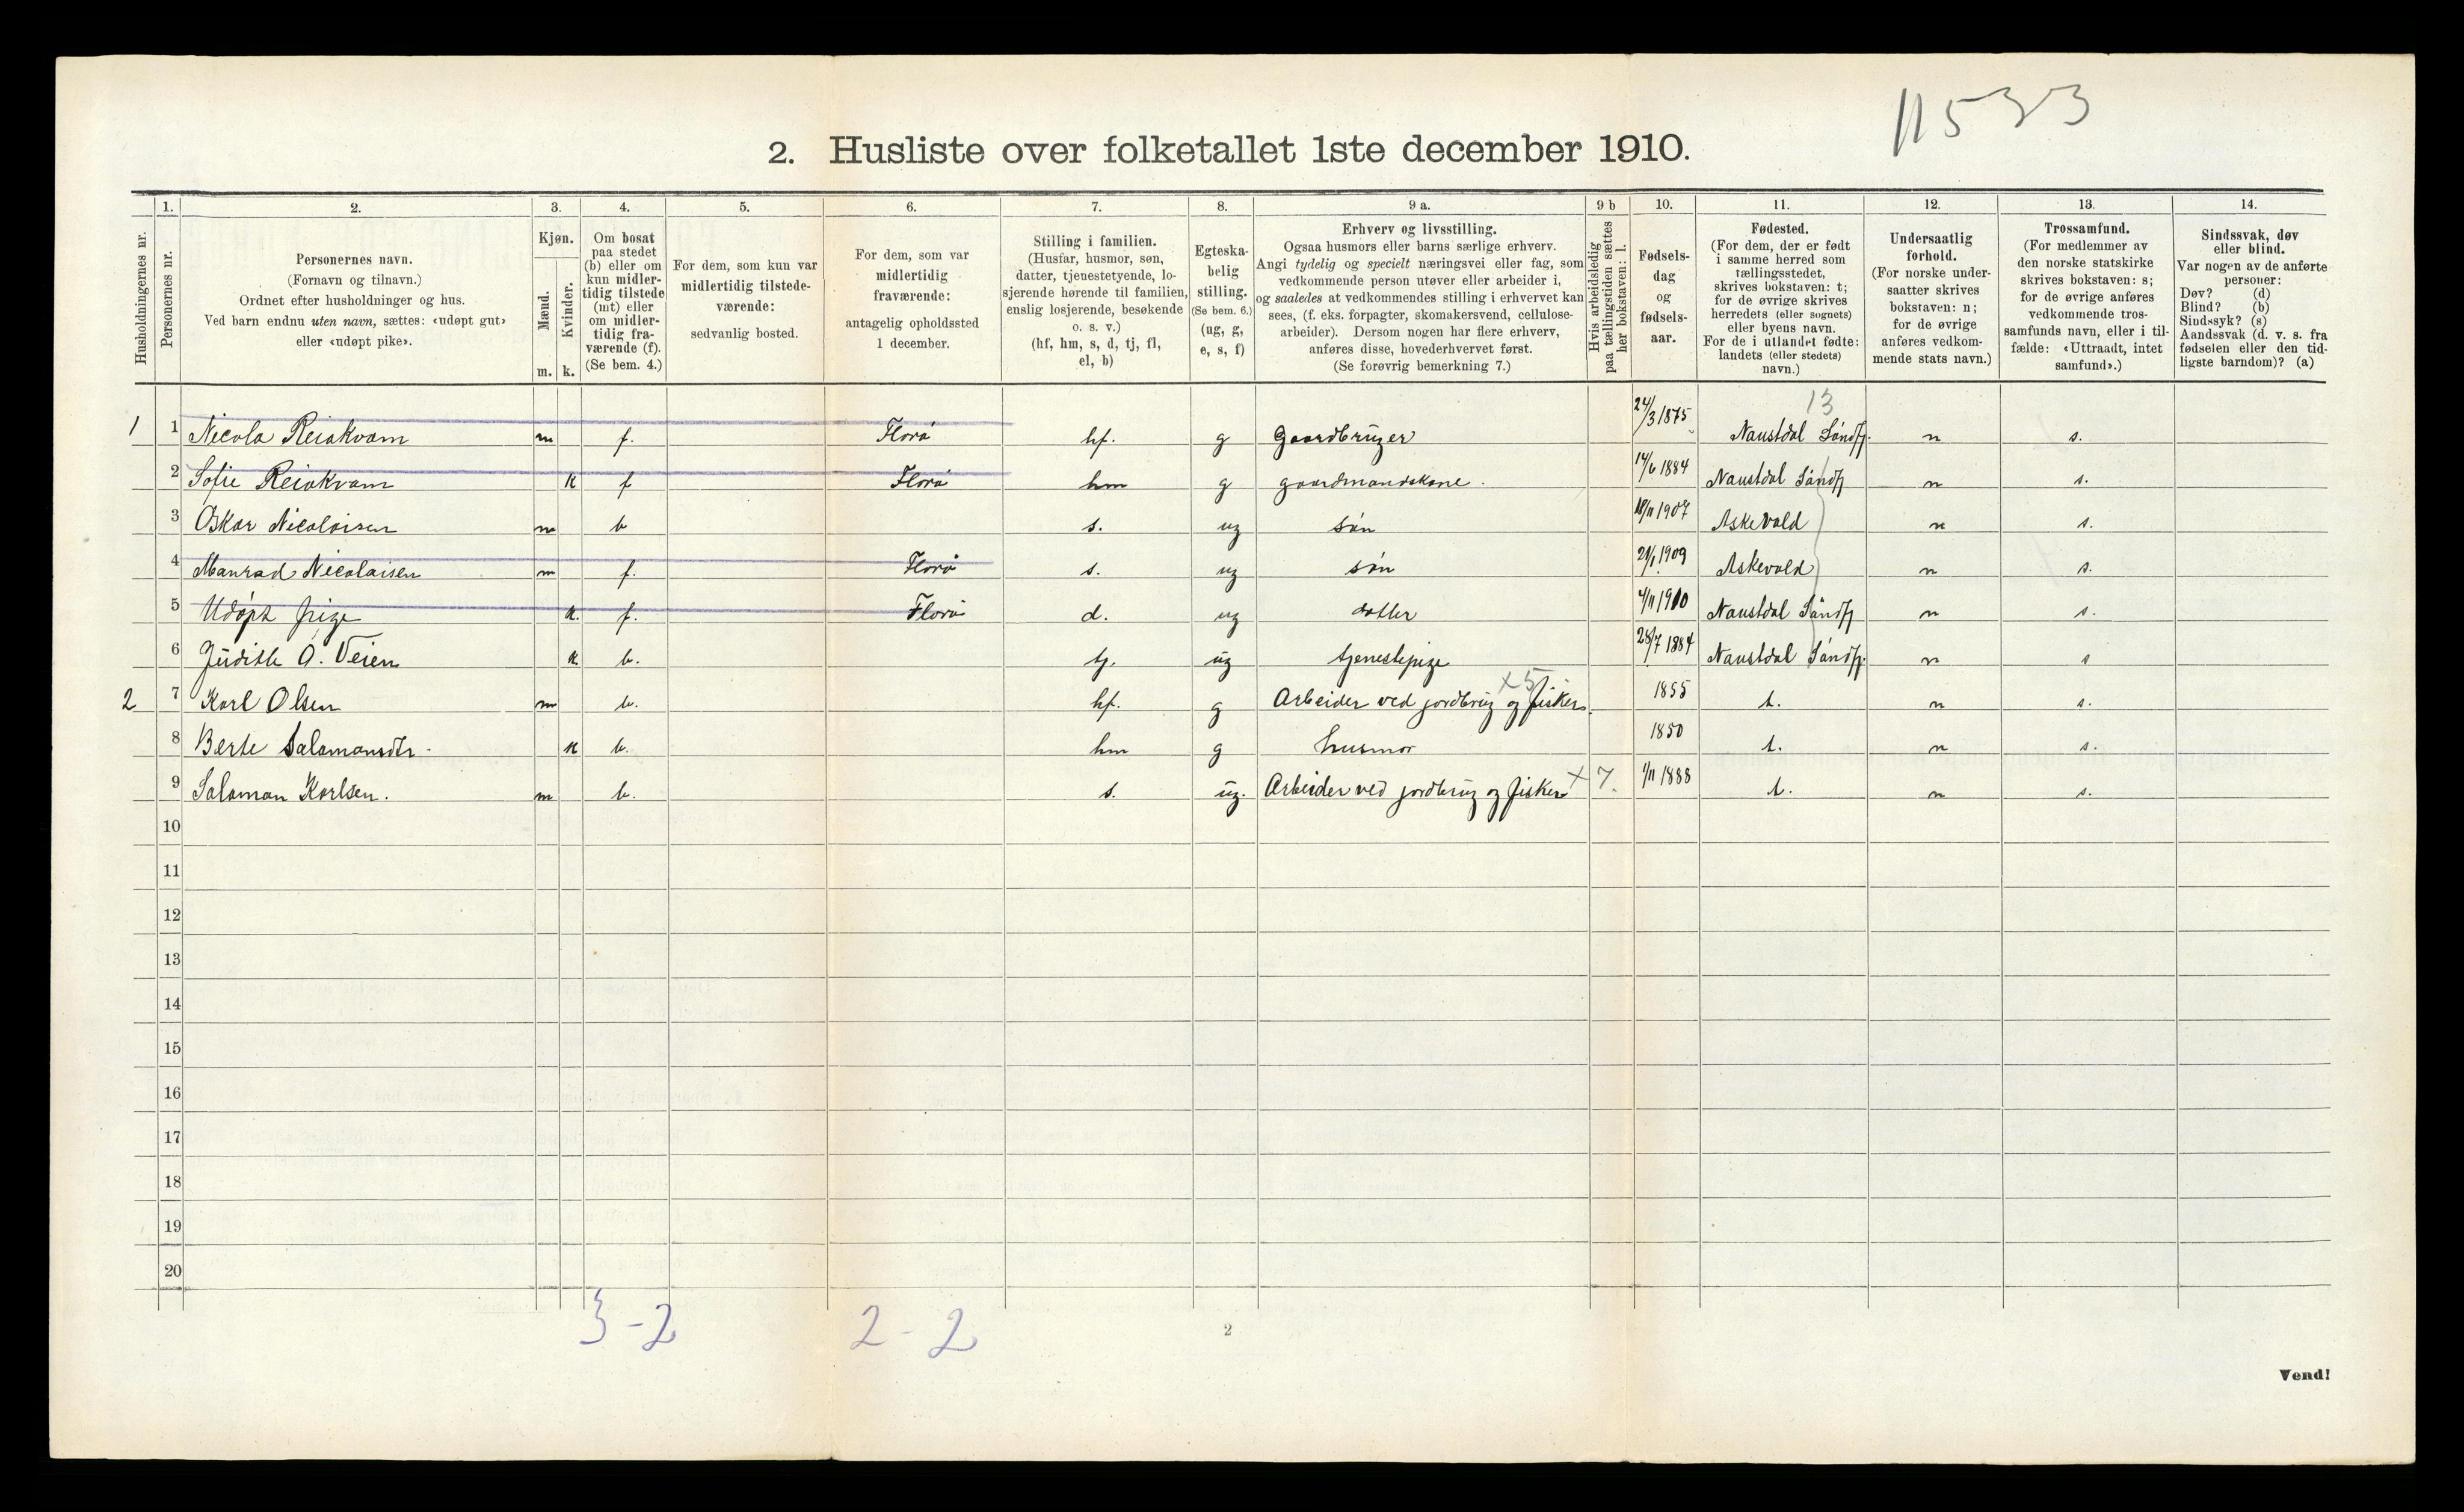 11533
2. Husliste over folketallet 1ste december 1910.
Husholdningernes nr.
1.
Personernes nr.
2.
Personernes navn.
(Fornavn og tilnavn.)
Ordnet efter husholdninger og hus.
Ved barn endnu uten navn, sættes: «udøpt gut»
eller «udøpt pike».
3.
Kjøn.
Mænd.
Kvinder.
m.
k.
4.
Om bosat
paa stedet
(b) eller om
kun midler-
tidig tilstede
(mt) eller
om midler-
tidig fra-
værende (f).
(Se bem. 4.)
5.
For dem, som kun var
midlertidig tilstede-
værende:
sedvanlig bosted.
6.
For dem, som var
midlertidig
fraværende:
antagelig opholdssted
1 december.
7.
Stilling i familien.
(Husfar, husmor, søn,
datter, tjenestetyende, lo-
sjerende hørende til familien,
enslig losjerende, besøkende
o. s. v.)
(hf, hm, s, d, tj, fl,
el, b)
8.
Egteska-
belig
stilling.
(Se bem. 6.)
(ug, g,
e, s, f)
9 a.
Erhverv og livsstilling.
Ogsaa husmors eller barns særlige erhverv.
Angi tydelig og specielt næringsvei eller fag, som
vedkommende person utøver eller arbeider i,
og saaledes at vedkommendes stilling i erhvervet kan
sees, (f. eks. forpagter, skomakersvend, cellulose-
arbeider). Dersom nogen har flere erhverv,
anføres disse, hovederhvervet først.
(Se forøvrig bemerkning 7.)
9 b
Hvis arbeidsledig
paa tællingstiden sættes
her bokstaven: l.
10.
Fødsels-
dag
og
fødsels-
aar.
11.
Fødested.
(For dem, der er født
i samme herred som
tællingsstedet,
skrives bokstaven: t;
for de øvrige skrives
herredets (eller sognets)
eller byens navn.
For de i utlandet fødte:
landets (eller stedets)
navn.)
12.
Undersaatlig
forhold.
(For norske under-
saatter skrives
bokstaven: n;
for de øvrige
anføres vedkom-
mende stats navn.)
13.
Trossamfund.
(For medlemmer av
den norske statskirke
skrives bokstaven: s;
for de øvrige anføres
vedkommende tros-
samfunds navn, eller i til-
fælde: «Uttraadt, intet
samfund».)
14.
Sindssvak, døv
eller blind.
Var nogen av de anførte
personer:
Døv? (d)
Blind? (b)
Sindssyk? (s)
Aandssvak (d. v. s. fra
fødselen eller den tid-
ligste barndom)? (a)
13
1 1 Nicola Reiakvam m f. Florö hf. g Gaardbruger 24/3 1875 Naustdal Söndfj. n s.
2 Sofie Reiakvam k f Florö hm g gaardmandskone. 14/6 1884 Naustdal Söndfj n s.
3 Oskar Nicolaisen m b s. ug sön 18/11 1907 Askevold n s.
4 Manrad Nicolaisen m f. Florö s. ug sön 21/1 1909 Askevold n s.
5 Udöpt pige k. f. Florö d. ug datter 4/11 1910 Naustdal Söndfj n s.
6 Judith O. Veien k b. tj. ug tjenestepige 28/7 1884 Naustdal Söndfj. n s
2 7 Karl Olsen m b. hf. g Arbeider ved jordbrug og fisker. x5 1855 t. n s.
8 Berte Salamonsdtr. k b. hm g husmor 1850 t. n s.
9 Salaman Karlsen. m b. s. ug. Arbeider ved jordbrug og fisker x 7. 1/11 1888 t. n s.
10
11
12
13
14
15
16
17
18
19
20
3-2 2-2
2
Vend!